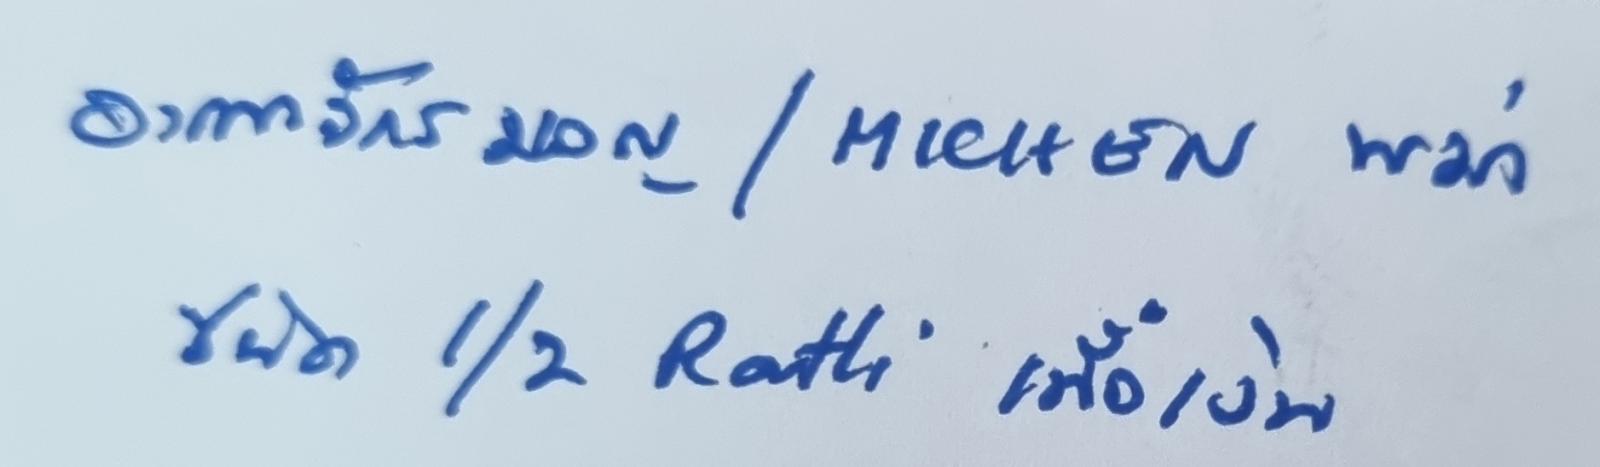 อาณาจักร มอญ / MICHEN พม่า
ชนิด 1/2 Rathi เนื้อเงิน